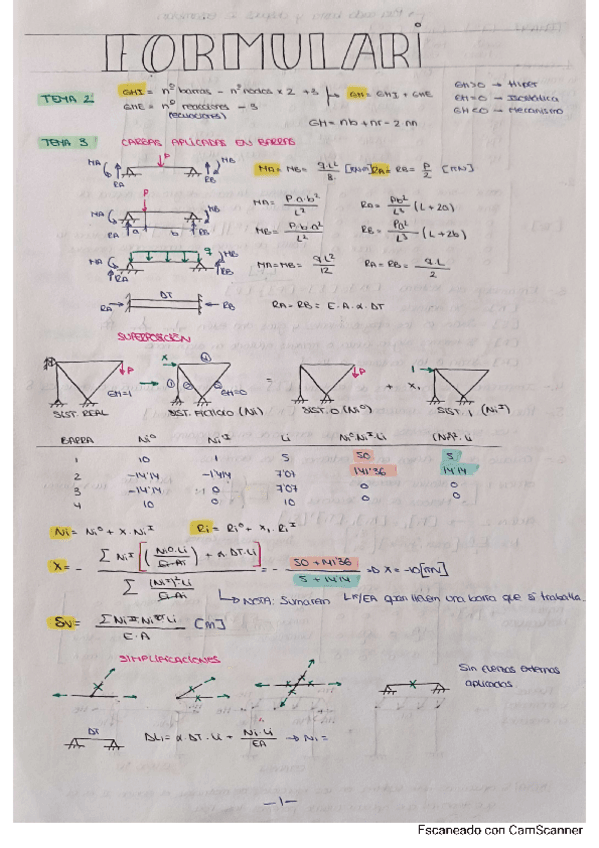 FORMULARI
TEMA 2
GHI = nº barras - nº nodos x 2 + 3
GHE = nº reacciones - 3
(ecuaciones)
GH = GHI + GHE
GH = nb + nr - 2·nn
GH>0 → Hiper
GH=0 → Isostática
GH<0 → Mecanismo
TEMA 3 CARGAS APLICADAS EN BARRAS
MA P MB
RA RB
MA = MB = q·L²/8 [KNm] RA = RB = P/2 [KN]
P
MA MB
RA a b RB
MA = P·a·b²/L² RA = Pb²/L³ (L+2a)
MB = P·b·a²/L² RB = Pa²/L³ (L+2b)
q
MA MB
RA RB
MA = MB = qL²/12 RA = RB = q·L/2
DT
RA RB
RA = RB = E·A·α·DT
SUPERPOSICIÓN
GH=1 P
SIST. REAL
X
GH=0
SIST. FICTICIO (Ni)
=
P
SIST. 0 (Niº)
+ X₁
1
SIST. 1 (Niᴵ)
BARRA Niº Niᴵ Li Niº·Niᴵ·Li (Niᴵ)²·Li
1 10 1 5 50 5
2 -14'14 -1'414 7'07 141'36 14'14
3 -14'14 0 7'07 0 0
4 10 0 10 0 0
Ni = Niº + X·Niᴵ Ri = Riº + X₁·Riᴵ
X = - Σ Niᴵ [(Niº·Li/E·Ai) + α·DT·Li] / Σ (Niᴵ)²·Li/E·Ai = - (50 + 141'36)/(5 + 14'14) → X = -10 [KN]
NOTA: Sumaren L/EA quan lleven una barra que si trabaja.
δv = Σ Niᴵᴵ·Niᴵᴵᴵ·Li / E·A [m]
SIMPLIFICACIONES
Sin fuerzas externas
aplicadas
DT
ΔLi = α·DT·Li + Ni·Li/EA → Ni =
-1-
Escaneado con CamScanner